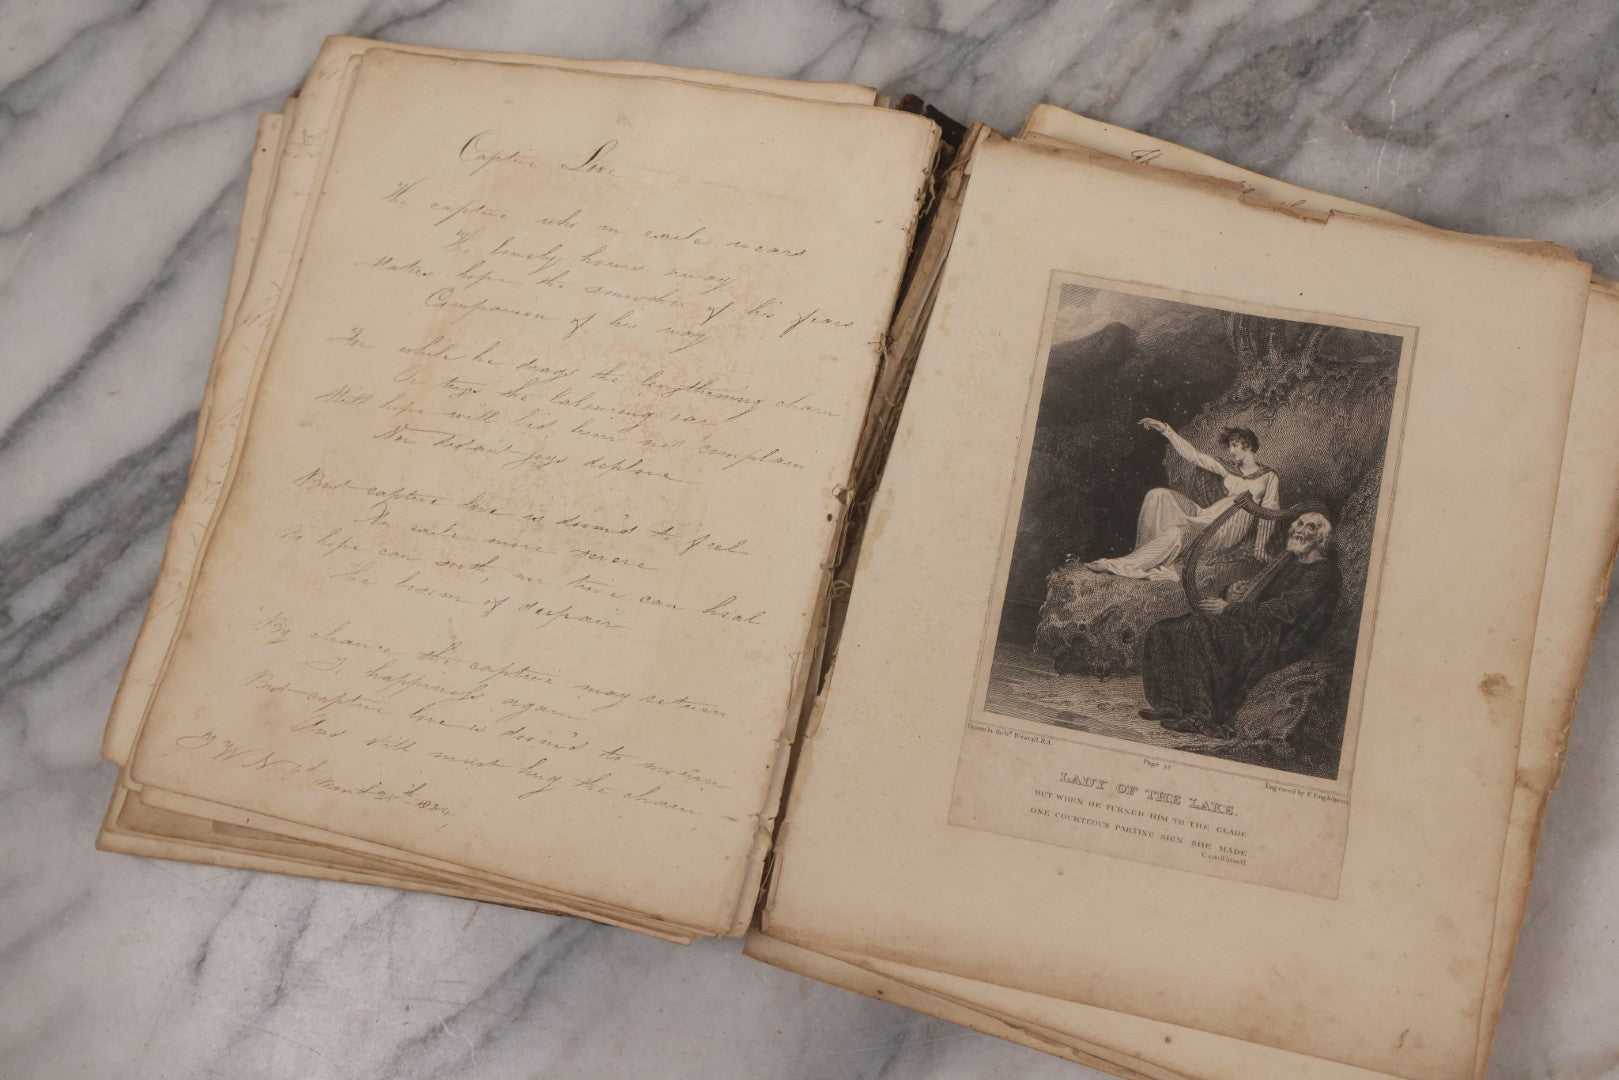 Captive Love
The captive who in exile wears
The lonely hours away
Makes hope the smoother of his fears
Companion of his way
For while he drags the lengthening chain
Or tugs the labouring oar
Still hope will bid him not complain
Nor distant joys deplore
But captive love is doom'd to feel
No hope can sooth, nor time can heal
The bosom of despair
By chance the captive may return
To happiness again
But captive love is doom'd to mourn
And still must hug the chain,
By W N Month 25th 1834
Drawn by Richd. Westall, R.A.
Page 57
Engraved by F. Engleheart
LADY OF THE LAKE.
BUT WHEN HE TURNED HIM TO THE GLADE
ONE COURTEOUS PARTING SIGN SHE MADE.